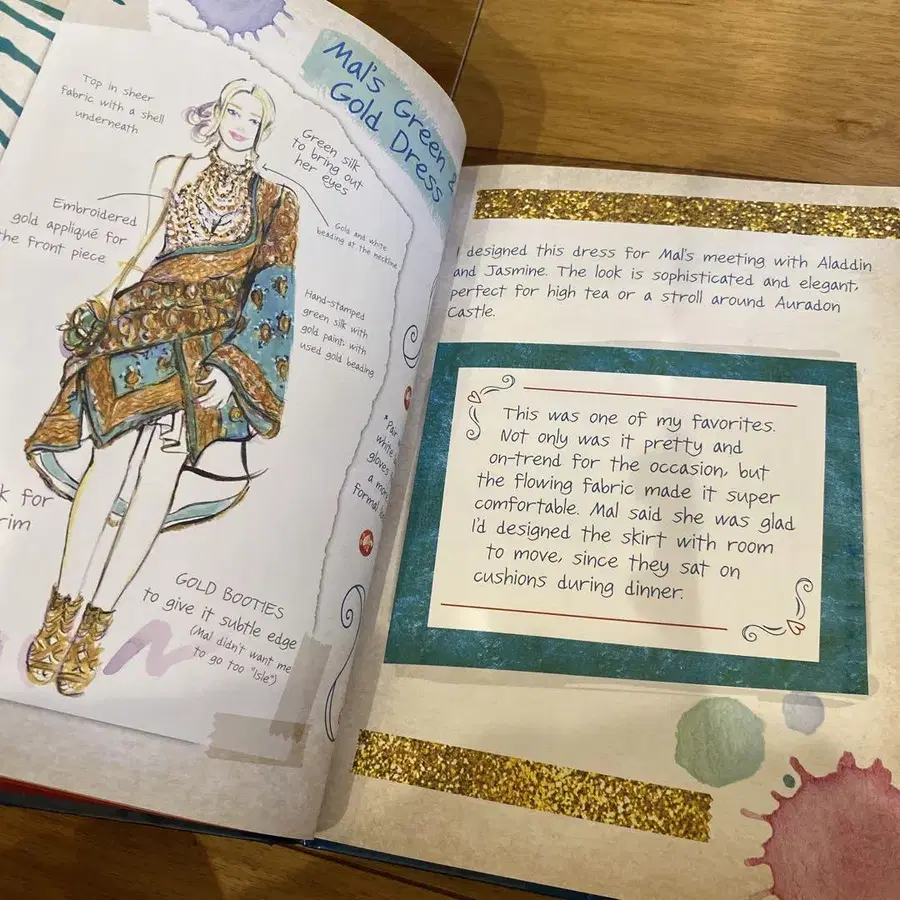 Mal's Green &
Gold Dress
Top in sheer
fabric with a shell
underneath
Green silk
to bring out
her eyes
Gold and white
beading at the neckline
Embroidered
gold appliqué for
the front piece
Hand-stamped
green silk with
gold paint, with
used gold beading
k for
rim
GOLD BOOTIES
to give it subtle edge
(Mal didn't want me
to go too "Isle")
*Pair
white
gloves
a mor
formal
I designed this dress for Mal's meeting with Aladdin
and Jasmine. The look is sophisticated and elegant,
perfect for high tea or a stroll around Auradon
Castle.
This was one of my favorites.
Not only was it pretty and
on-trend for the occasion, but
the flowing fabric made it super
comfortable. Mal said she was glad
I'd designed the skirt with room
to move, since they sat on
cushions during dinner.